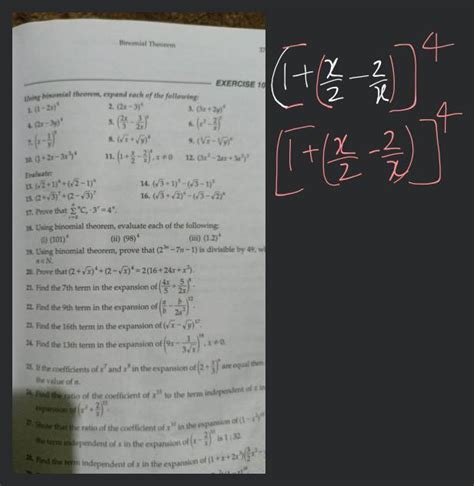 Binomial Theorem
EXERCISE 10
Using binomial theorem, expand each of the following:
1. (1 − 2x)⁴ 2. (2x − 3)⁶ 3. (3x + 2y)⁴
4. (2x − 3y)⁴ 5. (2x/3 − 3/2x)⁶
7. (x − 1/x)⁵ 8. (√x + √y)⁸
10. (1 + 2x − 3x²)⁴ 11. (1 + x/2 − 2/x)⁴, x ≠ 0 12. (3x² − 2ax + 3a²)³
Evaluate:
13. (√2 + 1)⁶ + (√2 − 1)⁶ 14. (√3 + 1)⁵ − (√3 − 1)⁵
15. (2 + √3)⁷ + (2 − √3)⁷ 16. (√3 + √2)⁴ − (√3 − √2)⁴
17. Prove that
18. Using binomial theorem, evaluate each of the following:
(i) (101)⁴ (ii) (98)⁴ (iii) (1.2)⁴
19. Using binomial theorem, prove that (2³ⁿ − 7n − 1) is divisible by 49,
n ∈ N.
20. Prove that (2 + √x)⁴ + (2 − √x)⁴ = 2(16 + 24x + x²).
21. Find the 7th term in the expansion of (4x/5 + 5/2x)⁸.
22. Find the 9th term in the expansion of (a/b − b/2a²)¹².
23. Find the 16th term in the expansion of (√x − √y)¹⁷.
24. Find the 13th term in the expansion of (9x − 1/3√x)¹⁸, x ≠ 0.
25. If the coefficients of x⁷ and x⁸ in the expansion of (2 + x/3)ⁿ are equal then
the value of n.
26. Find the ratio of the coefficient of x¹⁵ to the term independent of x in
expansion of (x² + 2/x)¹⁵.
27. Show that the ratio of the coefficient of x¹⁰ in the expansion of (1 − x²)¹⁰
the term independent of x in the expansion of (x − 2/x)¹⁰ is 1 : 32.
28. Find the term independent of x in the expansion of
[1+(x/2 − 2/x)]⁴
[1+(x/2 − 2/x)]⁴